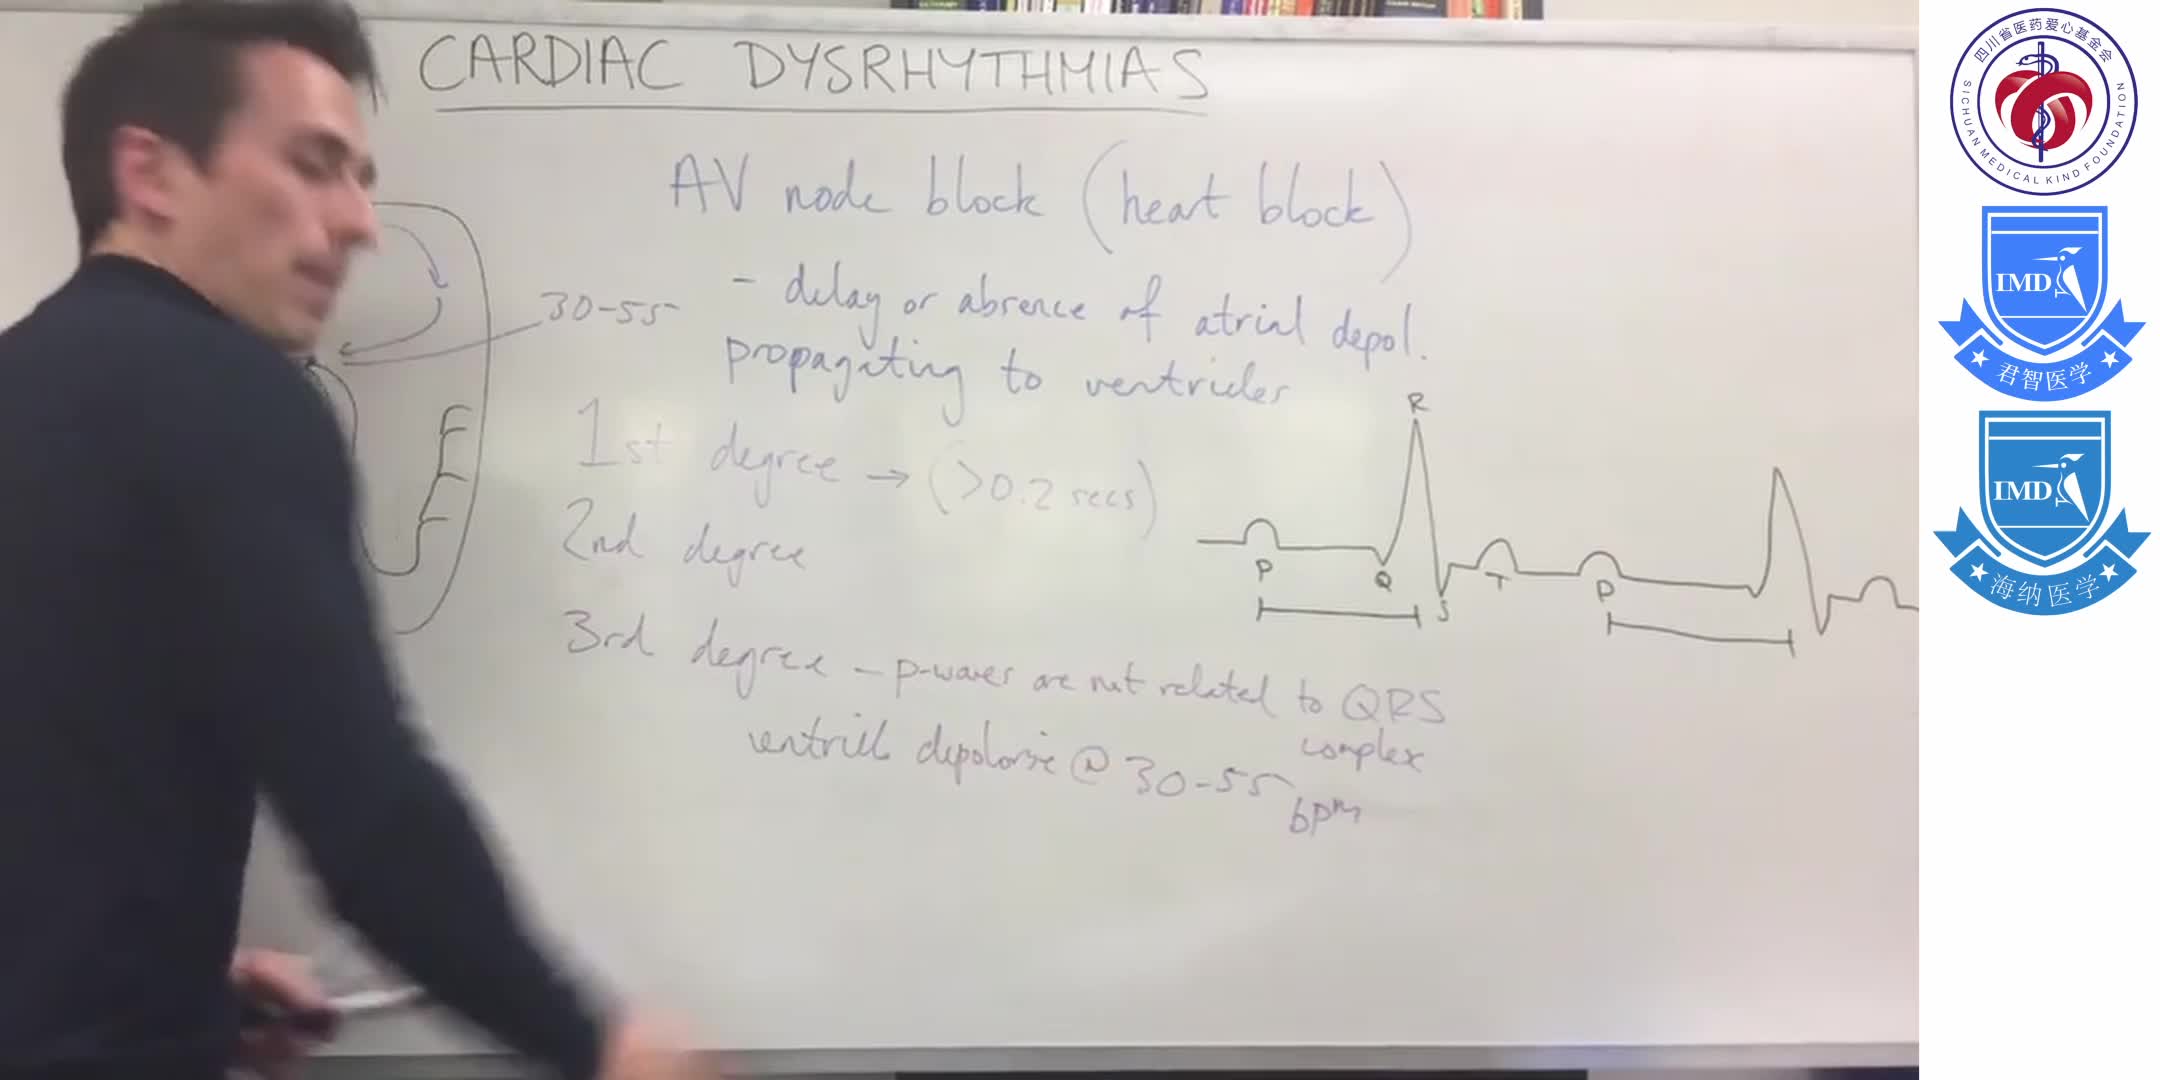 CARDIAC DYSRHYTHMIAS
AV node block (heart block)
- delay or absence of atrial depol.
propagating to ventricles
30-55
1st degree → (>0.2 secs)
2nd degree
3rd degree - p-waves are not related to QRS
complex
depolarise @ 30-55
bpm
R
P
Q
S
T
P
四川省医药爱心基金会
SICHUAN MEDICAL KIND FOUNDATION
IMD
君智医学
IMD
海纳医学